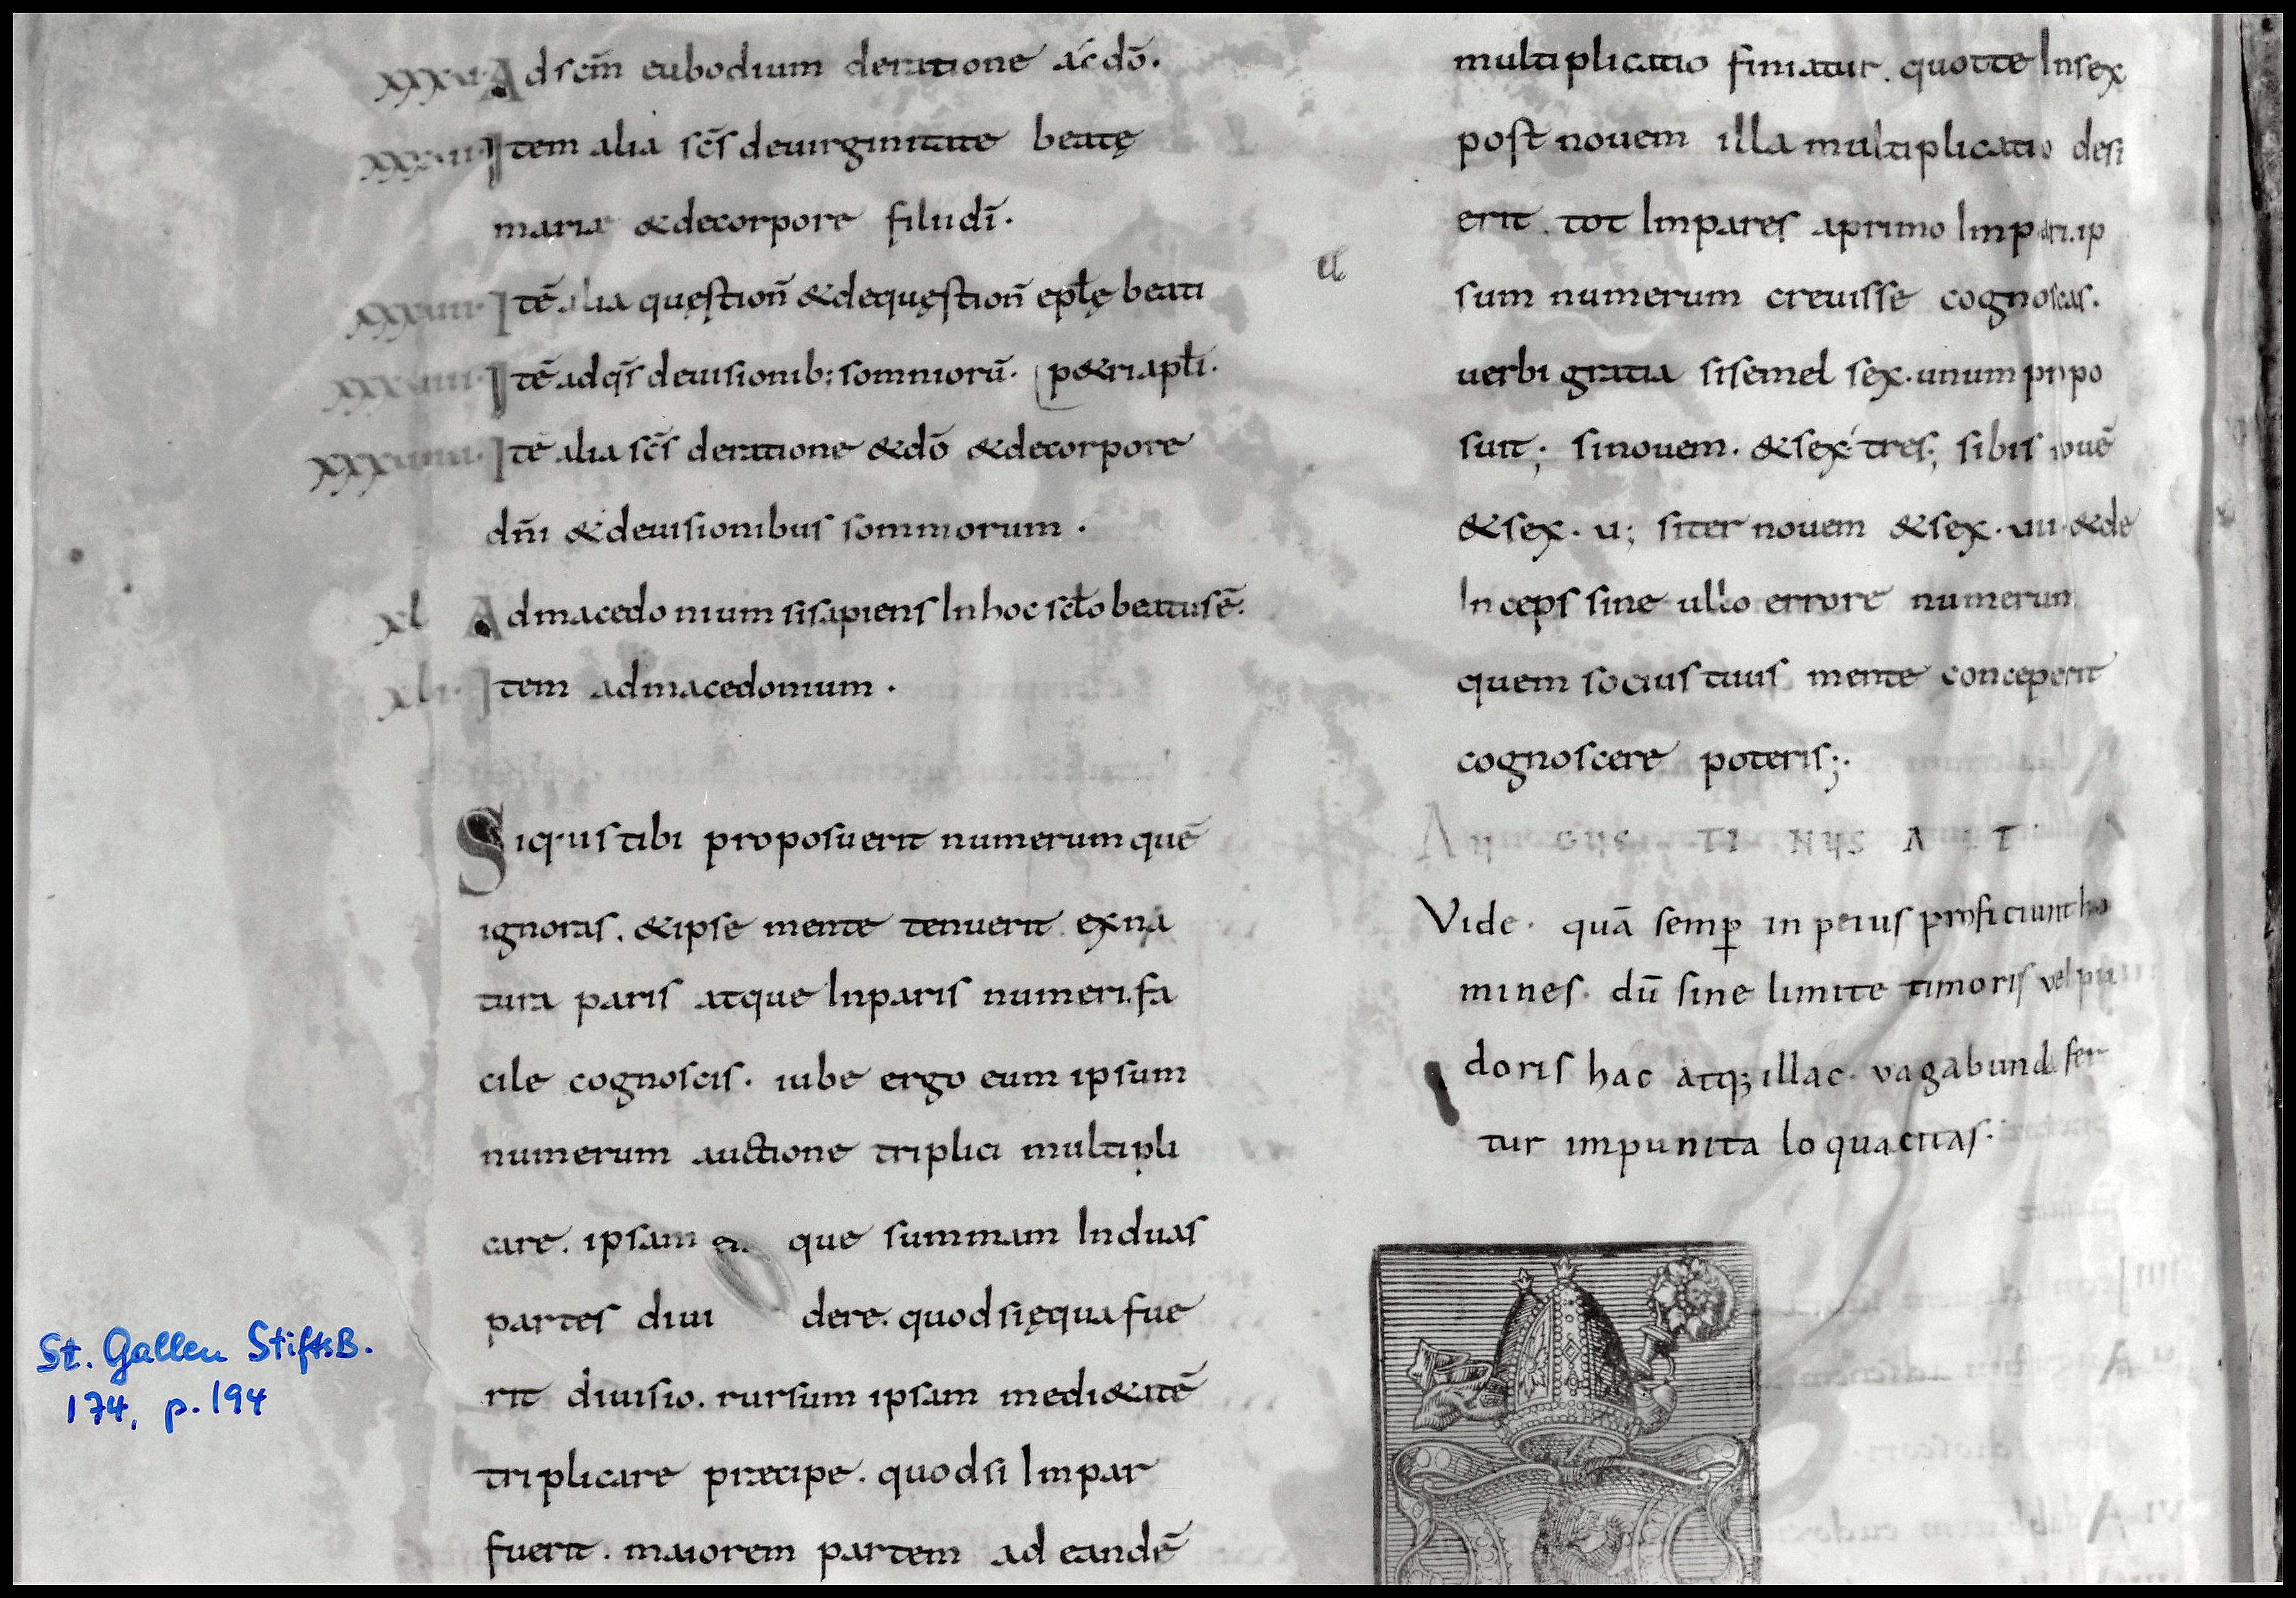 xxxvi. Adscm̄ eubodium deratione ac dō.
xxxvii Item alia sc̄s deuirginitate beatę
mariæ &decorpore filii dī.
xxxviii. Itē alia quęstion̄ &dequęstion̄ epłę beati
xxxviiii. Itē adqs̄ deuisionib; somniorū. p&ri apłi.
xxxviiii. Itē alia sc̄s deratione &dō &decorpore
dn̄i &deuisionibus somniorum.
xl Admacedonium sisapiens Inhoc scło beatus ē.
xli. Item admacedonium.
Siquis tibi proposuerit numerum quē
ignoras. &ipse mente tenuerit ex na
tura paris atque Inparis numeri. fa
cile cognoscis. iube ergo eum ipsum
numerum auctione triplici multipli
care. ipsam que summam Induas
partes diui dere. quod si ęqua fue
rit diuisio. rursum ipsam medi&atē
triplicare præcipe. quodsi Impar
fuerit. maiorem partem ad eandē
multiplicatio finiatur. quotte Insex
post nouem illa multiplicatio desi
erit. tot Impares aprimo Impari. ip
sum numerum creuisse cognoscas.
uerbi gratia sisemel sex. unum propo
suit; sinouem. &sex tres; sibis nouē
&sex. u; siter nouem &sex. uii. &de
Inceps sine ullo errore numerum
quem socius tuus mente conceperit
cognoscere poteris;.
AUGUSTINUS AIT
Vide. quā semp̄ in peius proficiunt ho
mines. dū sine limite timoris vel pu
doris hac atq; illac. vagabunda fer
tur impunita loquacitas.
St. Gallen StiftsB.
174, p. 194